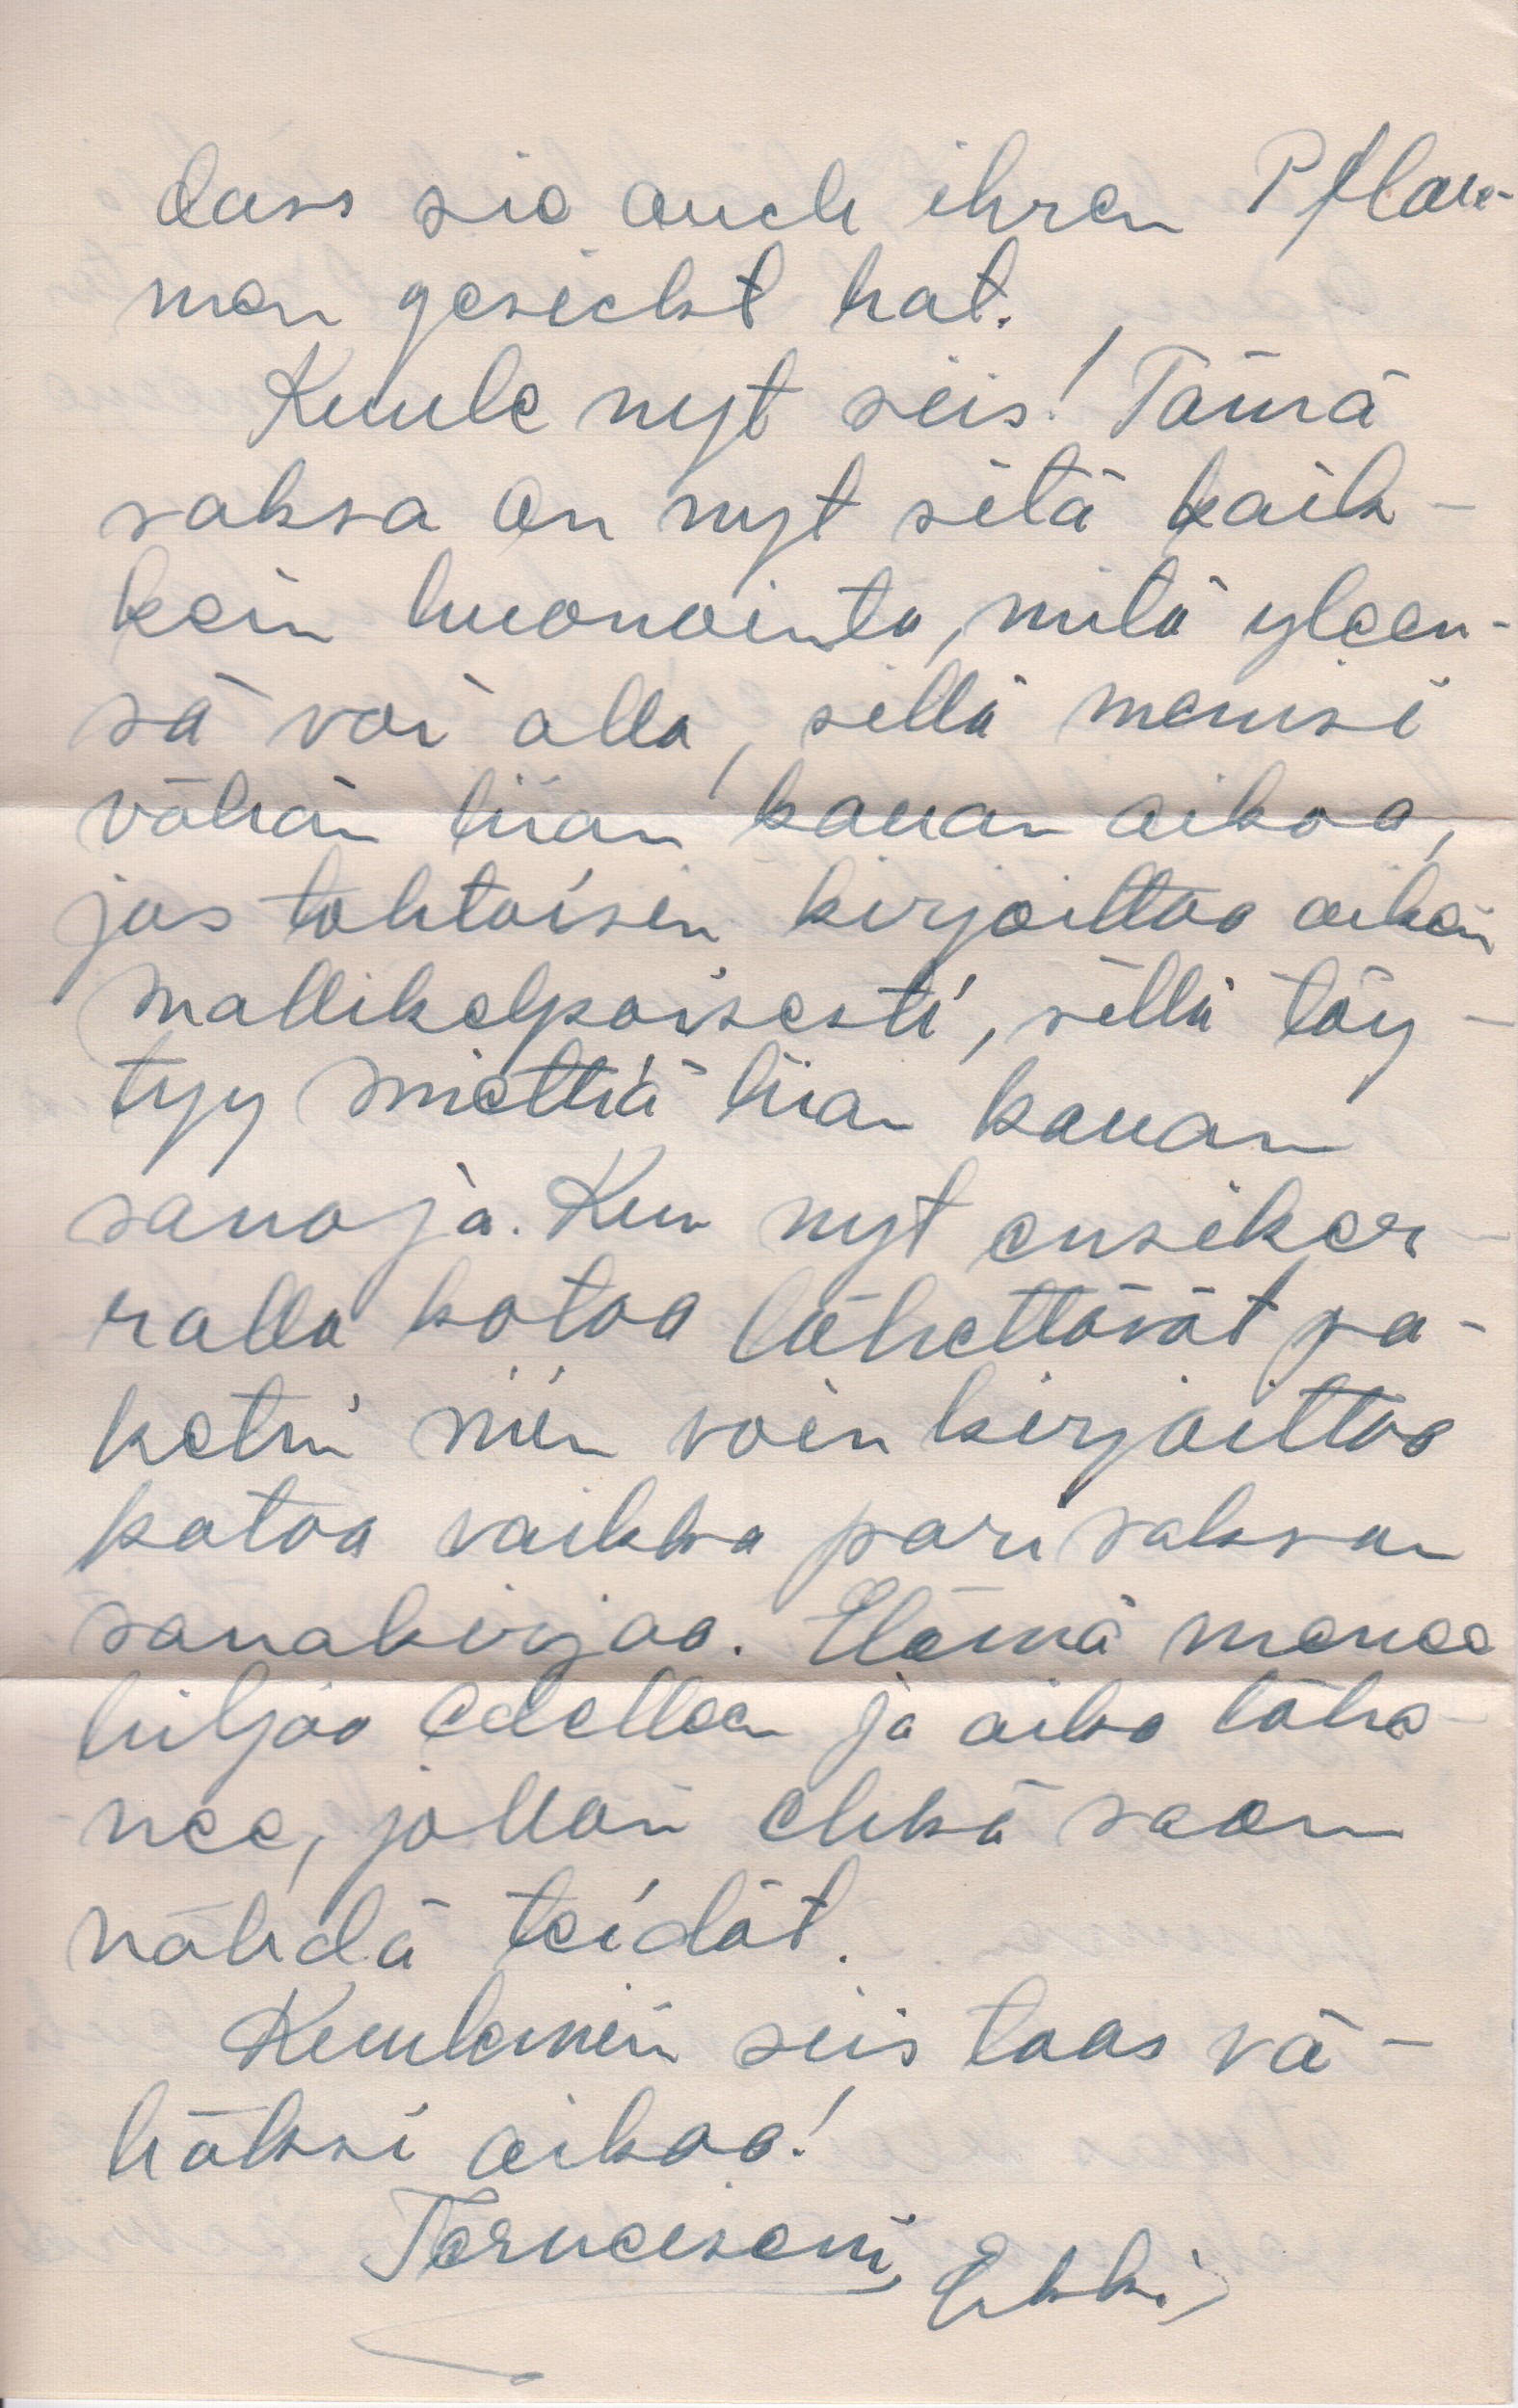 dass sie auch ihren Pflau-
men gesickt hat.
Kuule nyt siis! Tämä
saksa on nyt sitä kaik-
kein huonointa, mitä yleen-
sä voi olla, sillä menisi
vähän liian kauan aikaa,
jos tahtoisin kirjoittaa aikain
mallikelpoisesti, sillä täy-
tyy miettiä liian kauan
sanoja. Kun nyt ensiker-
ralla kotoa lähettävät pa-
ketin niin voin kirjoittaa
kotoa vaikka pari saksan
sanakirjaa. Elämä menee
hiljaa edelleen ja aika lähe-
nee, jolloin ehkä saan
nähdä teidät.
Kuulemiin siis taas vä-
häksi aikaa!
Terveiseni, Erkki